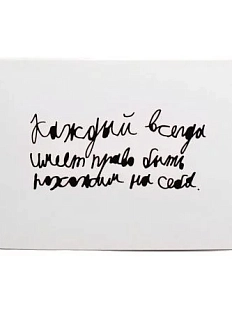 Каждый всегда
имеет право быть
похожим на себя.